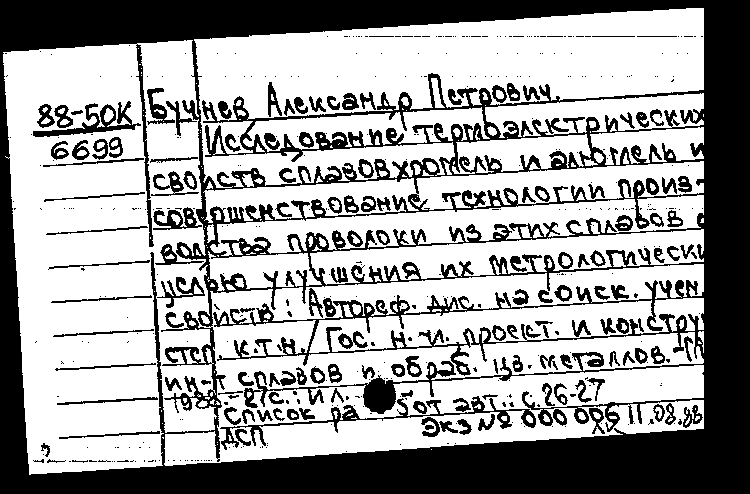 88-50К Бучнев Александр Петрович.
6699 Исследование термоэлектрических
свойств сплавов хромель и алюмель и
совершенствование технологии произ-
водства проволоки из этих сплавов с
целью улучшения их метрологически
свойств: Автореф. дис. на соиск. учен.
степ. к.т.н. / Гос. н.-и., проект. и констру
ин-т сплавов и обраб. цв. металлов. -
1988. - 27с.: ил.
Список ра от авт.: с. 26-27
ДСП Экз № 000 006 11.08.88